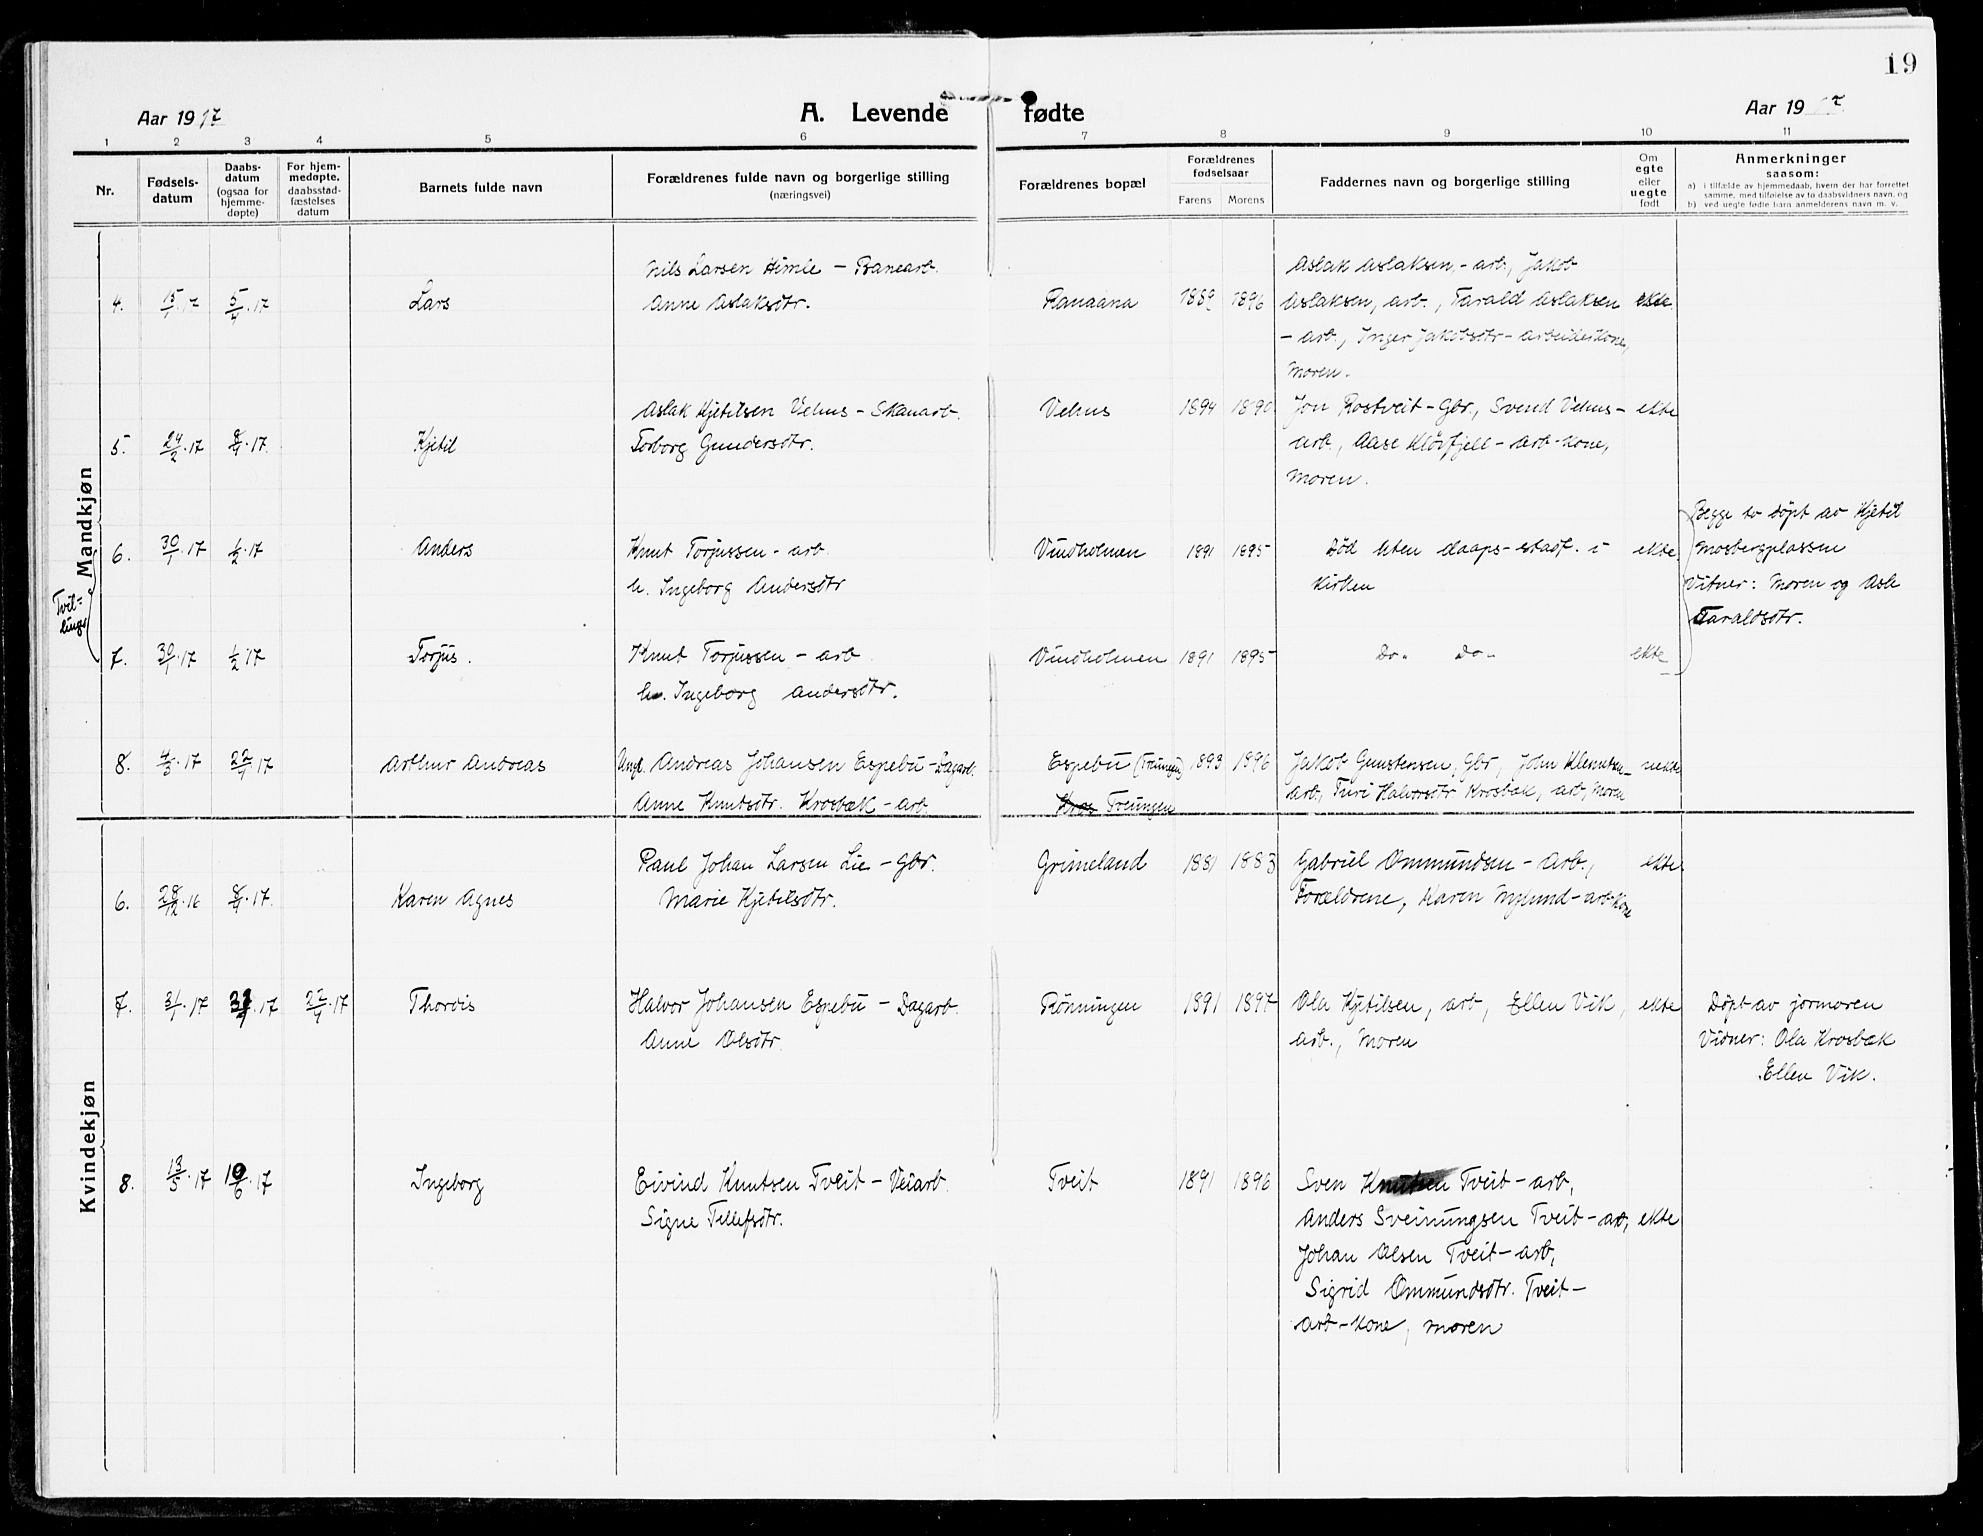 19
Aar 1917 A. Levende fødte Aar 1917
1 2 3 4 5 6 7 8 9 10 11
Nr.
Fødsels-
datum
Daabs-
datum
(ogsaa for
hjemme-
døpte)
For hjem-
medøpte.
daabsstad-
fæstelses
datum
Barnets fulde navn
Forældrenes fulde navn og borgerlige stilling
(næringsvei)
Forældrenes bopæl
Forældrenes
fødselsaar
Farens Morens
Faddernes navn og borgerlige stilling
Om
egte
eller
uegte
født
Anmerkninger
saasom:
a) i tilfælde av hjemmedaab, hvem der har forrettet
samme, med tilføielse av to daabsvidners navn, og
b) ved uegte fødte barn anmelderens navn m. v.
Mandkjøn
4. 15/1.17 5/4.17 Lars
Nils Larsen Himle - Banearb.
Anne Aslaksdtr.
Ranaana 1889 1896
Aslak Aslaksen - arb., Jakob
Aslaksen, arb., Tarald Aslaksen
- arb., Inger Jakobsdtr - arbeiderkone,
Moren.
ekte.
5. 24/2.17 8/4.17. Kjetil
Aslak Kjetilsen Vehus - Skauarb.
Torborg Gundersdtr.
Vehus 1894 1890
Jon Rostveit - Gbr., Svend Vehus -
arb., Aase Kløvfjell - arb-kone,
Moren.
ekte
Tvil=
linger
6. 30/1.17 1/2.17 Anders
Knut Torjussen - arb.
h. Ingeborg Andersdtr
Vindholmen 1891 1895
Død uten daaps-stadf. i
Kirken
ekte.
Begge to døpt av Kjetil
Mosbergplassen
Vitner: Moren og Asle
Taraldsdtr.
7. 30/1.17 1/2.17 Torjus.
Knut Torjussen - arb
h. Ingeborg Andersdtr.
Vindholmen 1891 1895
Do. Do.
ekte
8. 4/3.17 22/4.17 Arthur Andreas
Ungk. Andreas Johansen Espebu - Dagarb.
Anne Knutsdtr. Krosbæk - arb.
Espebu (Treungen) 1893 1896
Kros Treungen
Jakob Gunstensen, Gbr, John Klemetsen -
arb., Turi Halvorsdtr Krosbæk, arb, Moren
uekte
Kvindekjøn
6. 28/12.16 8/4.17. Karen Agnes
Paul Johan Larsen Lie - Gbr.
Marie Kjetilsdtr.
Grimeland 1881 1883
Gabriel Ommundsen - Arb.,
Forældrene, Karen Nylund - arb-kone
ekte.
7. 31/1.17 17 22/4.17 Thordis
Halvor Johansen Espebu - Dagarb.
Anne Olsdtr.
Rönningen 1891 1897
Ola Kjetilsen, arb, Ellen Vik,
arb., Moren
ekte
Døpt av jormoren
Vidner: Ola Krosbæk
Ellen Vik.
8. 13/5.17 10/6.17 Ingeborg
Eivind Knutsen Tveit - Veiarb.
Signe Tellefsdtr.
Tveit 1891 1896
Sven Knutsen Tveit - arb,
Anders Sveinungsen Tveit - arb,
Johan Olsen Tveit - arb,
Sigrid Ommundsdtr. Tveit -
arb-kone, moren
ekte